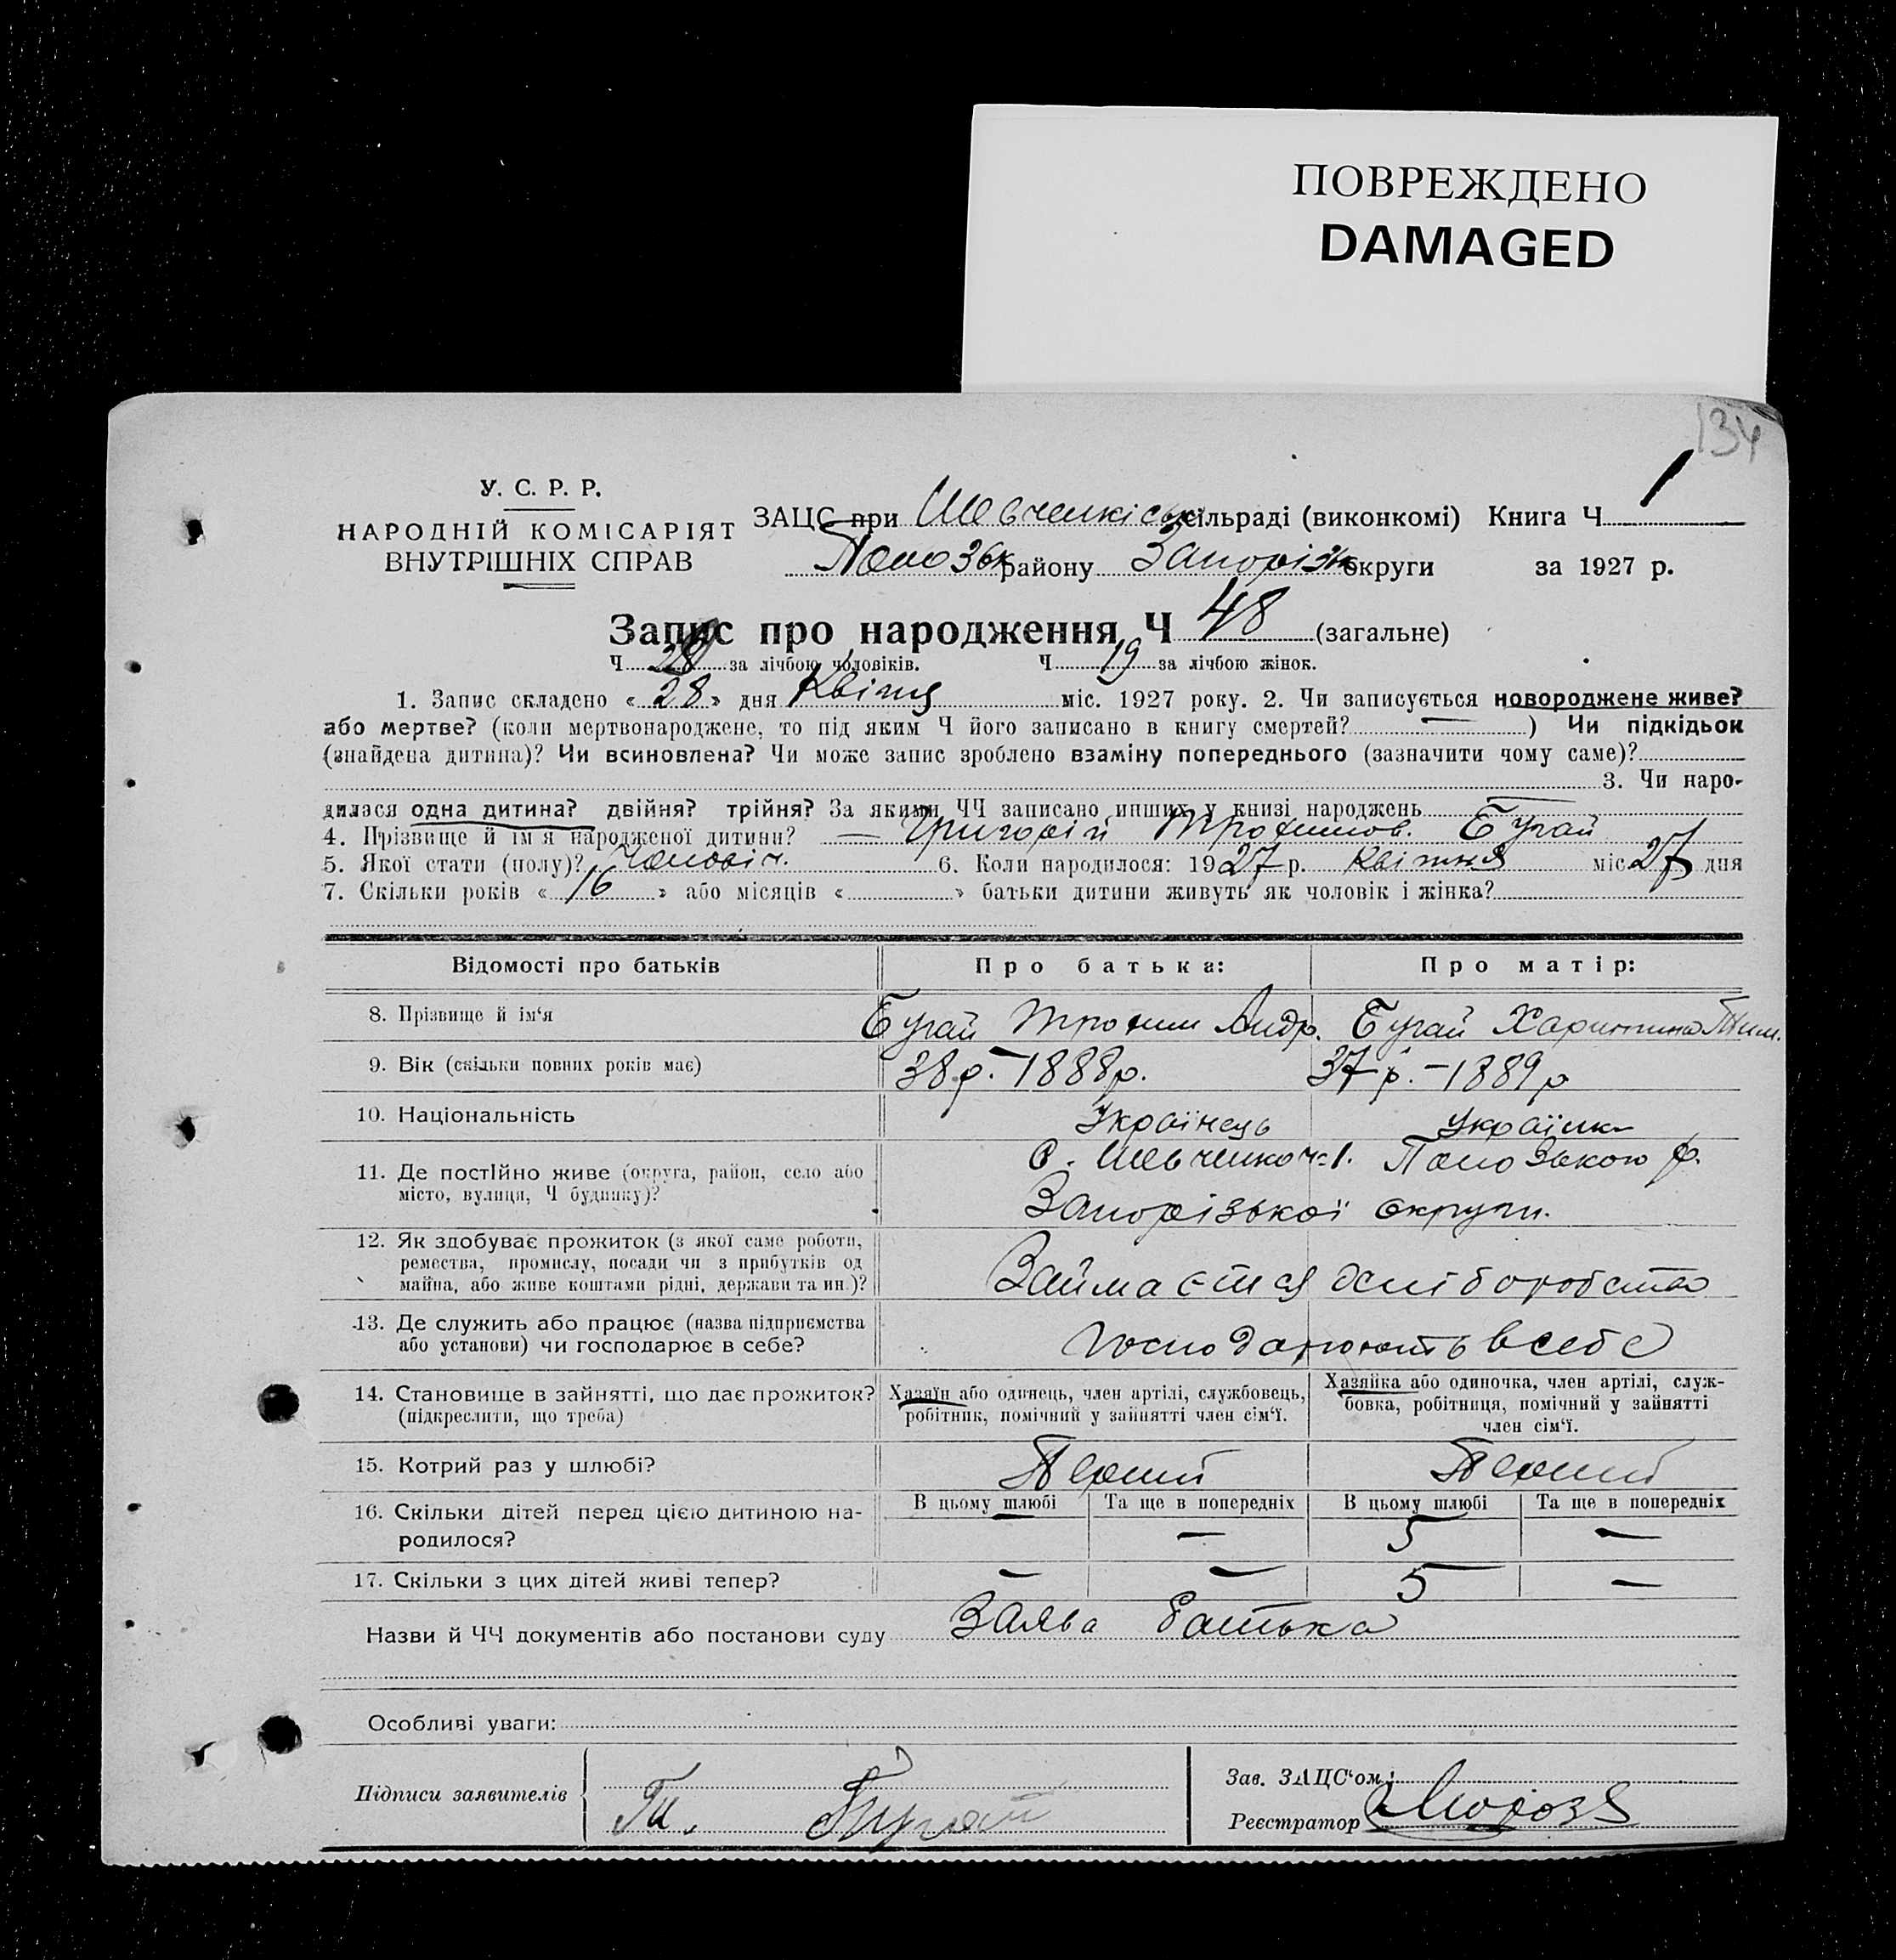 ПОВРЕЖДЕНО
DAMAGED
134
У. С. Р. Р.
НАРОДНІЙ КОМІСАРІЯТ
ВНУТРІШНІХ СПРАВ
ЗАЦС при Шевченківськ сільраді (виконкомі) Книга Ч 1
району Запоріж округи за 1927 р.
Запис про народження Ч 48 (загальне)
Ч за лічбою чоловіків. Ч 19 за лічбою жінок.
1. Запис складено « 28 » дня Квітня міс. 1927 року. 2. Чи записується новороджене живе?
або мертве? (коли мертвонароджене, то під яким Ч його записано в книгу смертей? — ) Чи підкідьок
(знайдена дитина)? Чи всиновлена? Чи може запис зроблено взаміну попереднього (зазначити чому саме)?
3. Чи наро-
дилася одна дитина? двійня? трійня? За якими ЧЧ записано инших у книзі народжень —
4. Прізвище й ім'я народженої дитини? — Григорій Трохимов. Бугай
5. Якої стати (полу)? Чоловіч. 6. Коли народилося: 1927 р. Квітня міс 27 дня
7. Скільки років « 16 » або місяців « » батьки дитини живуть як чоловік і жінка?
Відомості про батьків Про батька: Про матір:
8. Прізвище й ім'я Бугай Трохим Андр. Бугай Харитина Тим.
9. Вік (скільки повних років має) 38 р. – 1888 р. 37 р. – 1889 р
10. Національність Українець Українк
11. Де постійно живе (округа, район, село або С. Шевченко №1. р.
місто, вулиця, Ч будинку)? Запорізької округи.
12. Як здобуває прожиток (з якої саме роботи,
ремества, промислу, посади чи з прибутків од
майна, або живе коштами рідні, держави та ин.)? Займаєтця
13. Де служить або працює (назва підприємства
або установи) чи господарює в себе? Господарюють в себе
14. Становище в зайнятті, що дає прожиток? Хазяїн або одинець, член артілі, службовець, Хазяйка або одиночка, член артілі, служ-
(підкреслити, що треба) робітник, помічний у зайнятті член сім'ї. бовка, робітниця, помічний у зайнятті
член сім'ї.
15. Котрий раз у шлюбі? Перший Перший
16. Скільки дітей перед цією дитиною на- В цьому шлюбі Та ще в попередніх В цьому шлюбі Та ще в попередніх
родилося? — — 5 —
17. Скільки з цих дітей живі тепер? — — 5 —
Назви й ЧЧ документів або постанови суду Заява батька
Особливі уваги:
Підписи заявителів Бугай Зав. ЗАЦС'ом:
Реєстратор